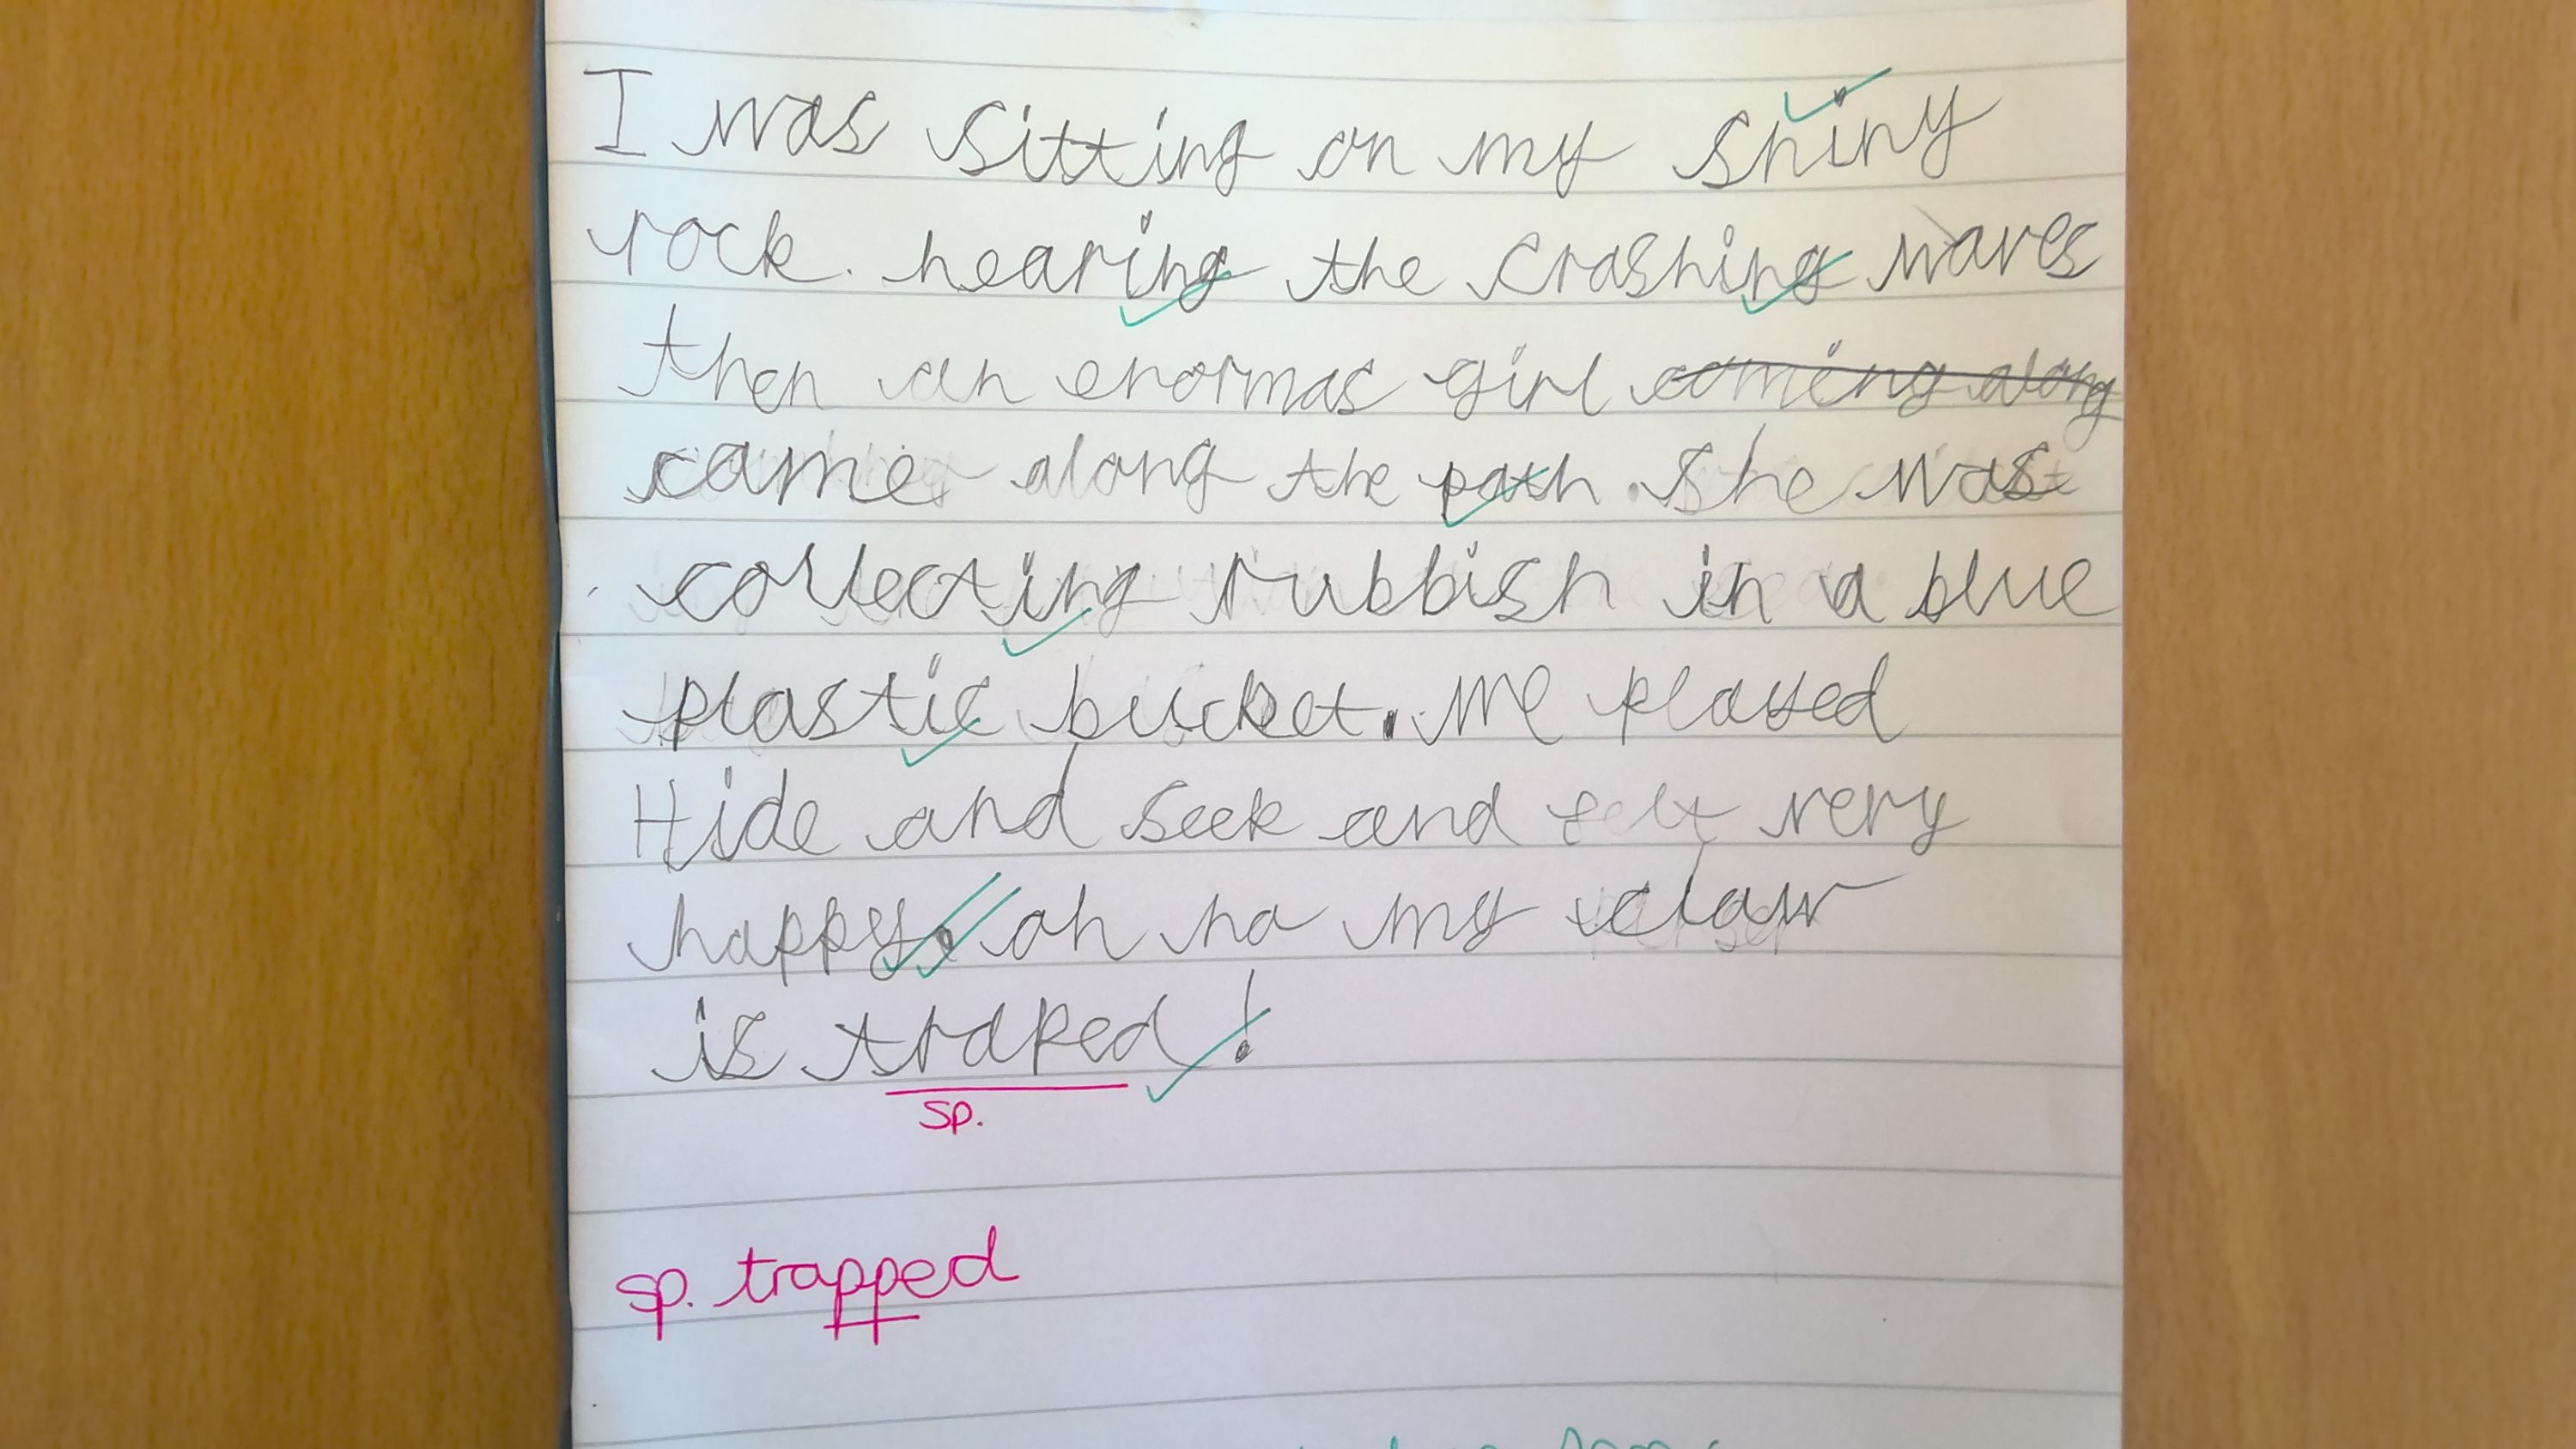 I was sitting on my shiny
rock. hearing the crashing waves
then an enormas girl coming along
came along the path. She was
collecting rubbish in a blue
plastic bucket. We played
Hide and seek and felt very
happy. oh no my claw
is traped!
sp.
sp. trapped